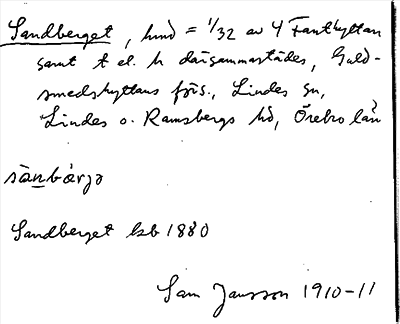 Sandberget, hmd = 1/32 av 4 Fanthyttan
samt t el. h därsammastädes, Guld-
smedshyttans förs., Lindes sn,
Lindes o. Ramsbergs hd, Örebro län
sànbárjə
Sandberget lsb 1880
Sam Jansson 1910-11